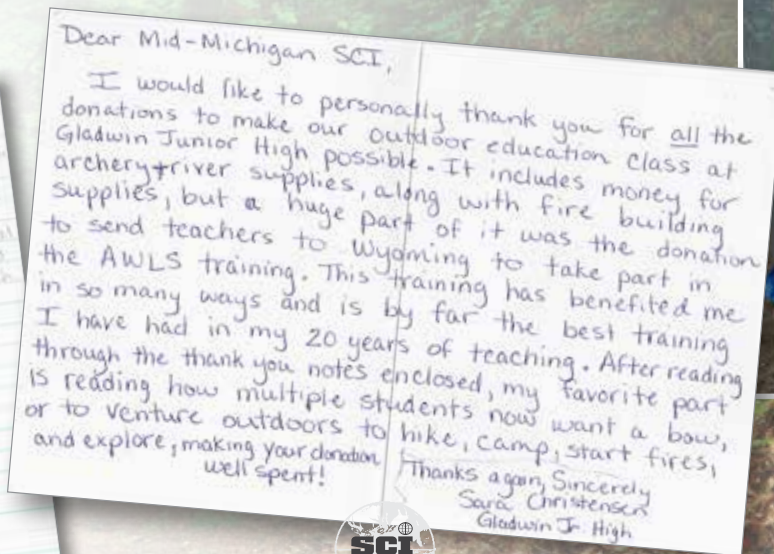 Dear Mid-Michigan SCI,
I would like to personally thank you for all the
donations to make our outdoor education class at
Gladwin Junior High possible. It includes money for
archery+river supplies, along with fire building
supplies, but a huge part of it was the donation
to send teachers to Wyoming to take part in
the AWLS training. This training has benefited me
in so many ways and is by far the best training
I have had in my 20 years of teaching. After reading
through the thank you notes enclosed, my favorite part
is reading how multiple students now want a bow,
or to venture outdoors to hike, camp, start fires,
and explore, making your donation
well spent!
Thanks again, Sincerely
Sara Christensen
Gladwin Jr. High
SCI